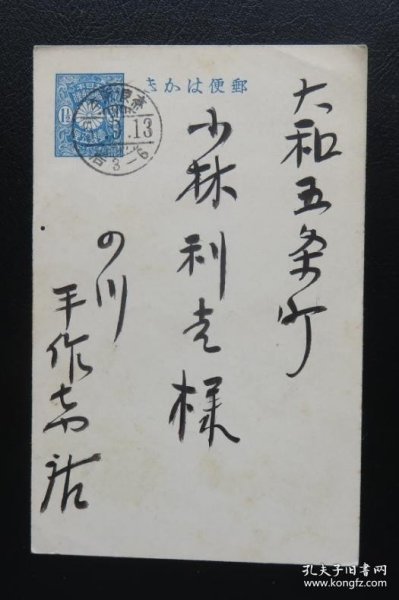 郵便はかき
1½
.13
大和五条町
小林利克様
の川
平作
孔夫子旧书网
www.kongfz.com